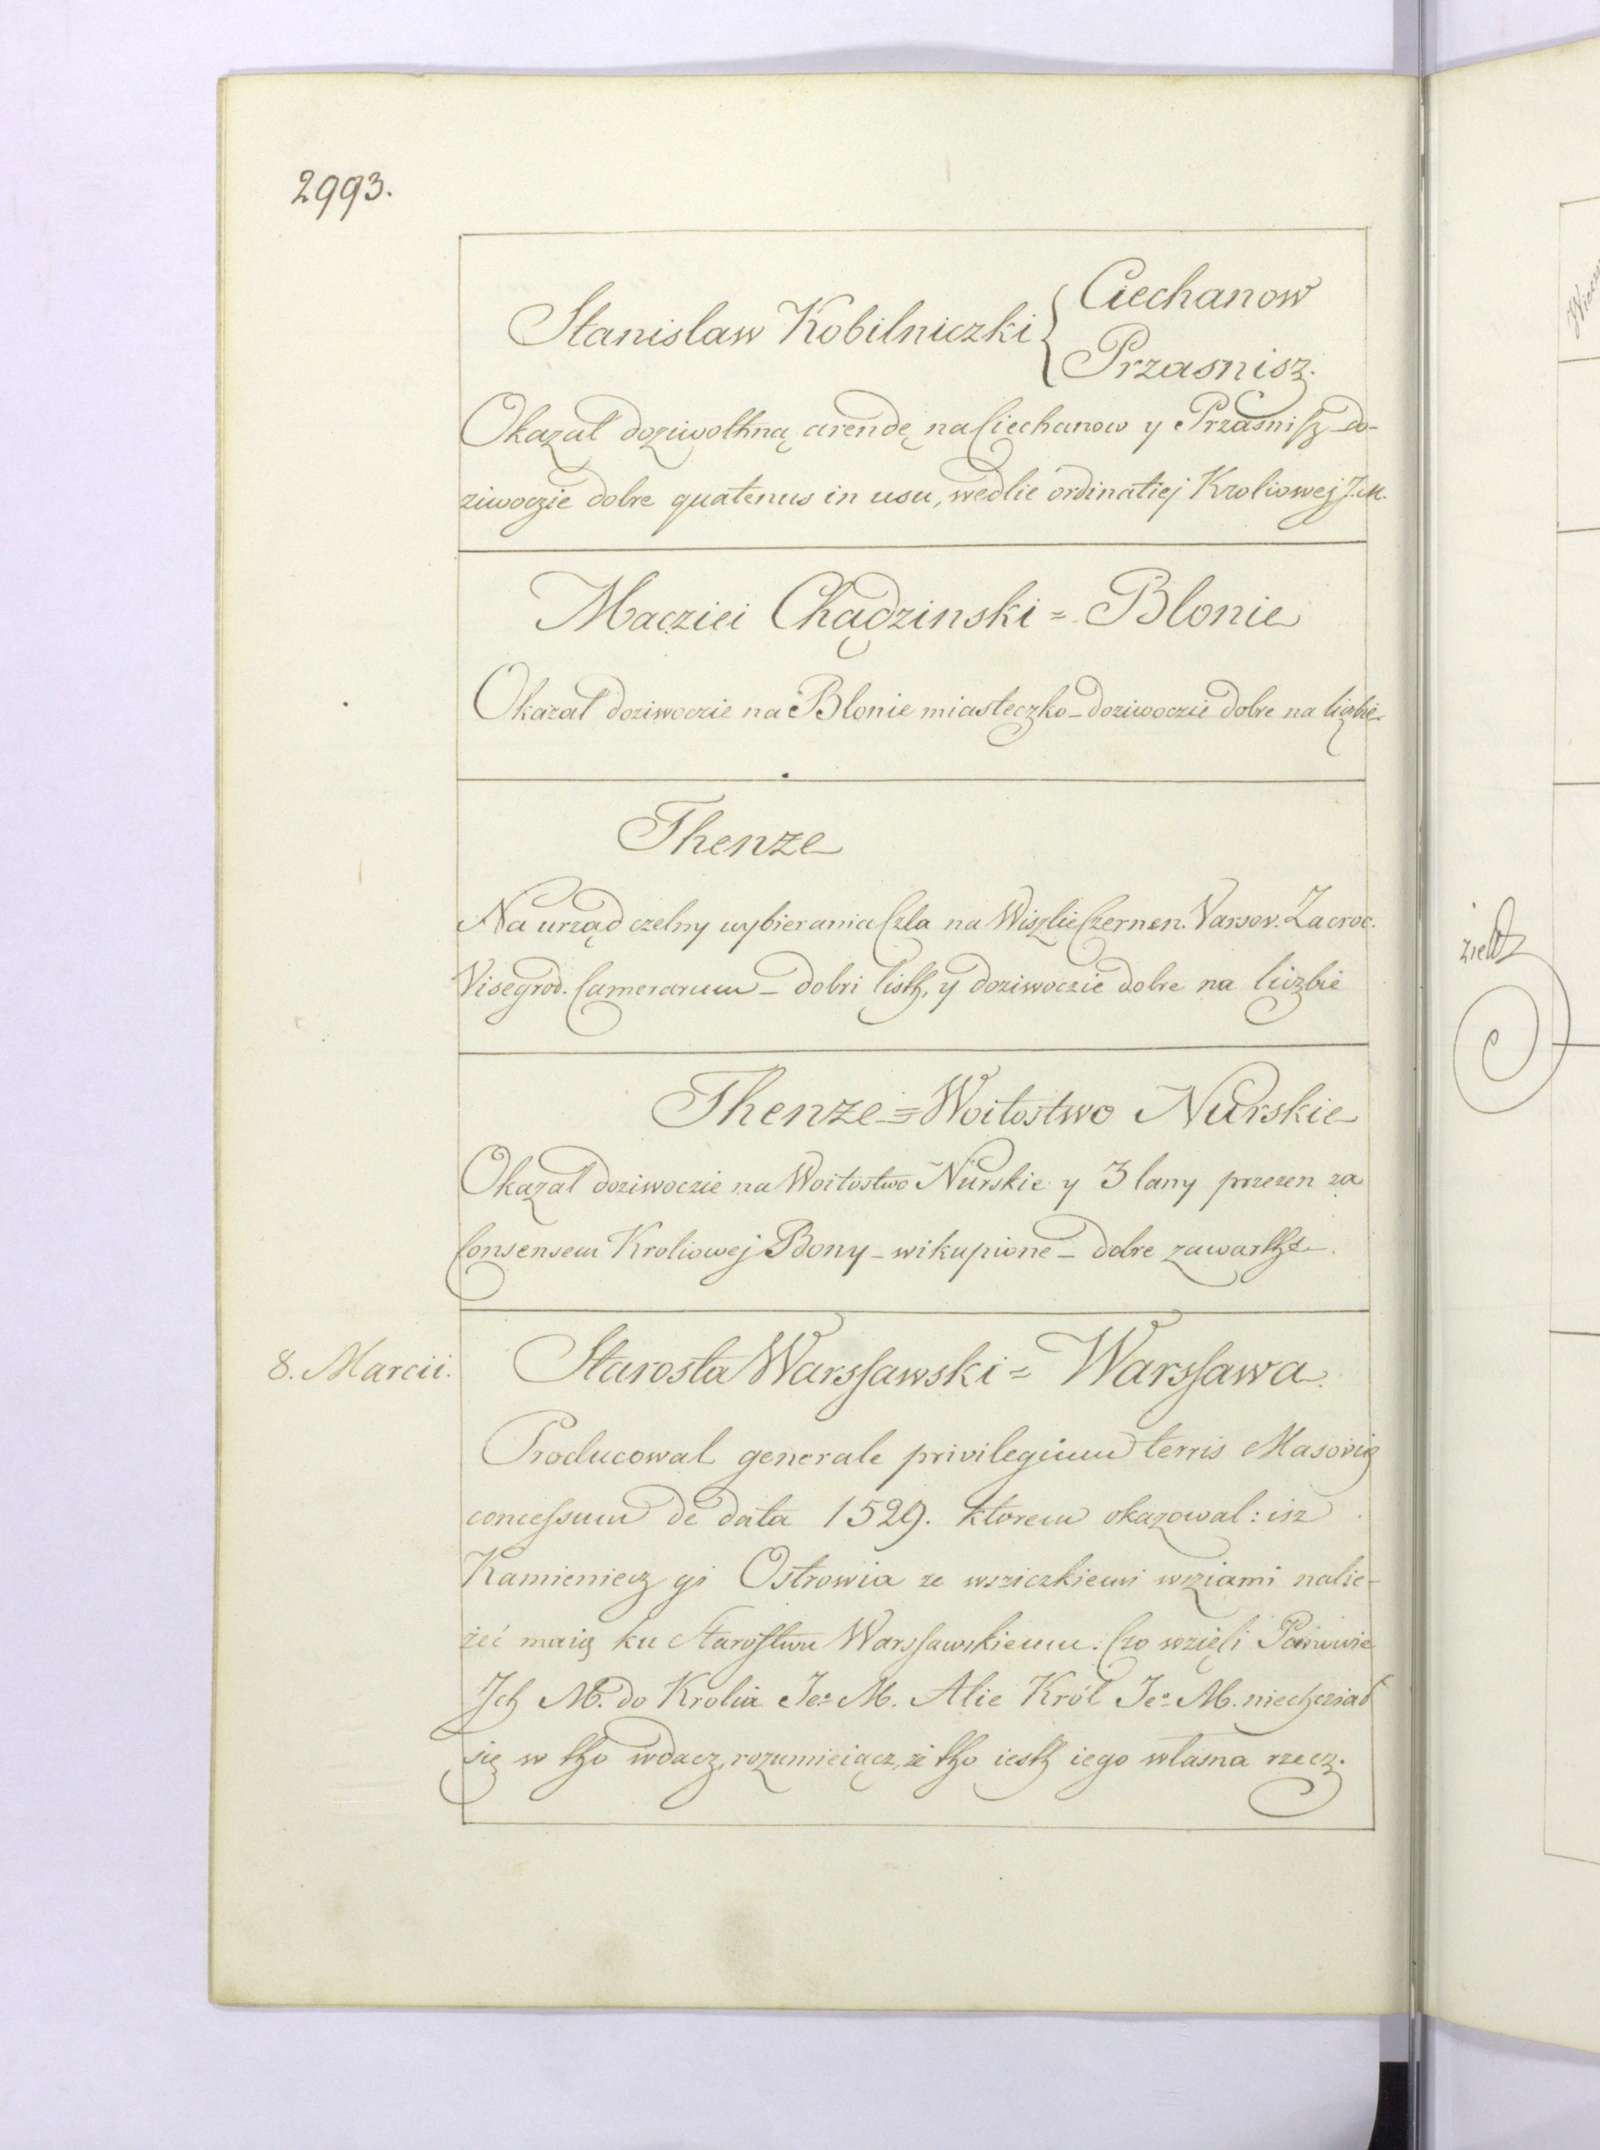 2993.
Stanislaw Kobilniczki { Ciechanow
Przasnisz.
Okazal doziwothną arendę na Ciechanow y Przasnisz do-
ziwoczie dobre quatenus in usu, wedlie ordinatiej Kroliowej J.M.
Macziei Chądzinski = Blonie
Okazal doziwoczie na Blonie miasteczko - doziwoczie dobre na liczbie
Thenze
Na urząd czelny wybierania Czla na Wiszlie Czernen. Varsov. Zacroc.
Visegrod. Camerarum - dobri listh, y doziwoczie dobre na liczbie
Thenze = Woitostwo Nurskie
Okazal doziwoczie na Woitostwo Nurskie y 3 lany przezen za
Consensem Kroliowej Bony - wikupione - dobre zawarthe.
8. Marcii.
Starosta Warssawski = Warssawa.
Producowal generale privilegium terris Masovię
concessum de data 1529. ktorem okazowal: isz
Kamieniecz yi Ostrowia ze wsziczkiemi wsziami nalie-
żeć maią ku Starostwu Warssawskiemu. Czo wzięli Panowie
Ich M. do Krolia Jeo M. Alie Król Jeo M. niechcział
się w tho wdacz, rozumieiącz, iż tho iesth iego własna rzecz.
zieltz